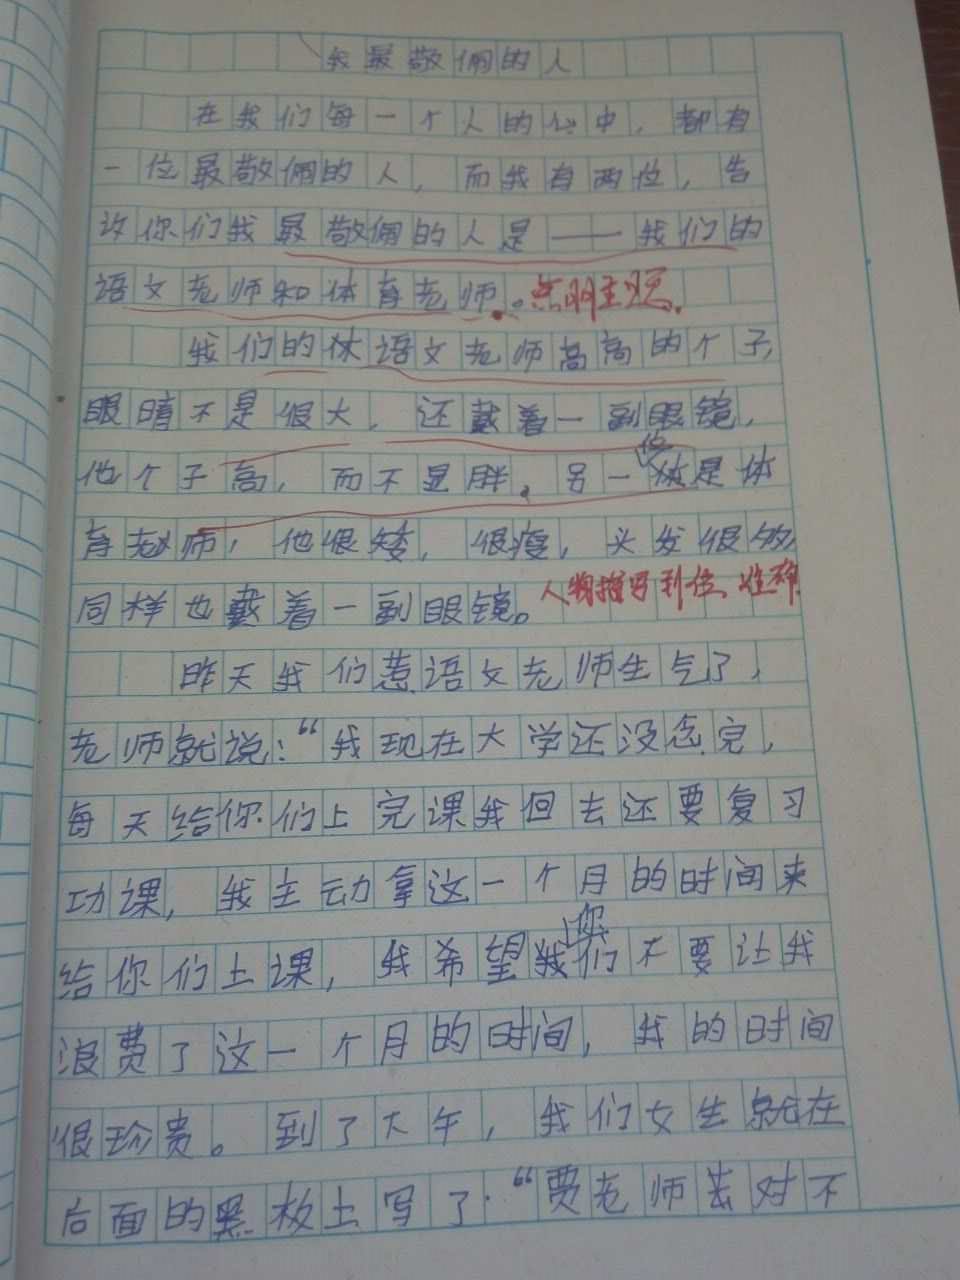 我最敬佩的人
在我们每一个人的心中，都有
一位最敬佩的人，而我有两位，告
诉你们我最敬佩的人是——我们的
语文老师和体育老师。点明主题。
我们的体语文老师高高的个子，
眼睛不是很大，还戴着一副眼镜，
他个子高，而不显胖。另一位是体
育老师，他很矮，很瘦，头发很
同样也戴着一副眼镜。人物描写到位、准确
昨天我们惹语文老师生气了，
老师就说：“我现在大学还没念完，
每天给你们上完课我回去还要复习
功课，我主动拿这一个月的时间来
给你们上课，我希望你们不要让我
浪费了这一个月的时间，我的时间
很珍贵。到了大午，我们女生就在
后面的黑板上写了：“贾老师 对不